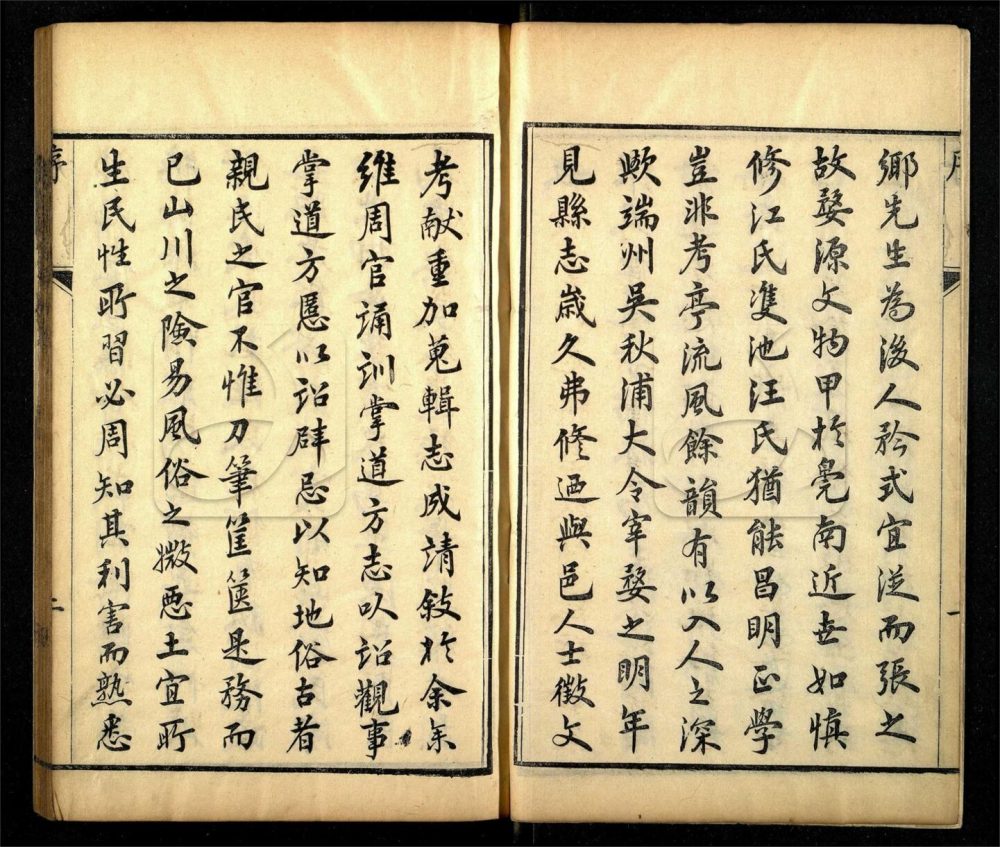 鄉先生為後人矜式宜從而張之
故婺源文物甲於皖南近世如慎
修江氏雙池汪氏猶能昌明正學
豈非考亭流風餘韻有以入人之深
歟端州吳秋浦大令宰婺之明年
見縣志歲久弗修迺與邑人士徵文
考献重加蒐輯志成請敍於余余
維周官誦訓掌道方志以詔觀事
掌道方慝以詔辟忌以知地俗古者
親民之官不惟刀筆筐篋是務而
已山川之險易風俗之媺惡土宜所
生民性所習必周知其利害而熟悉
序
二